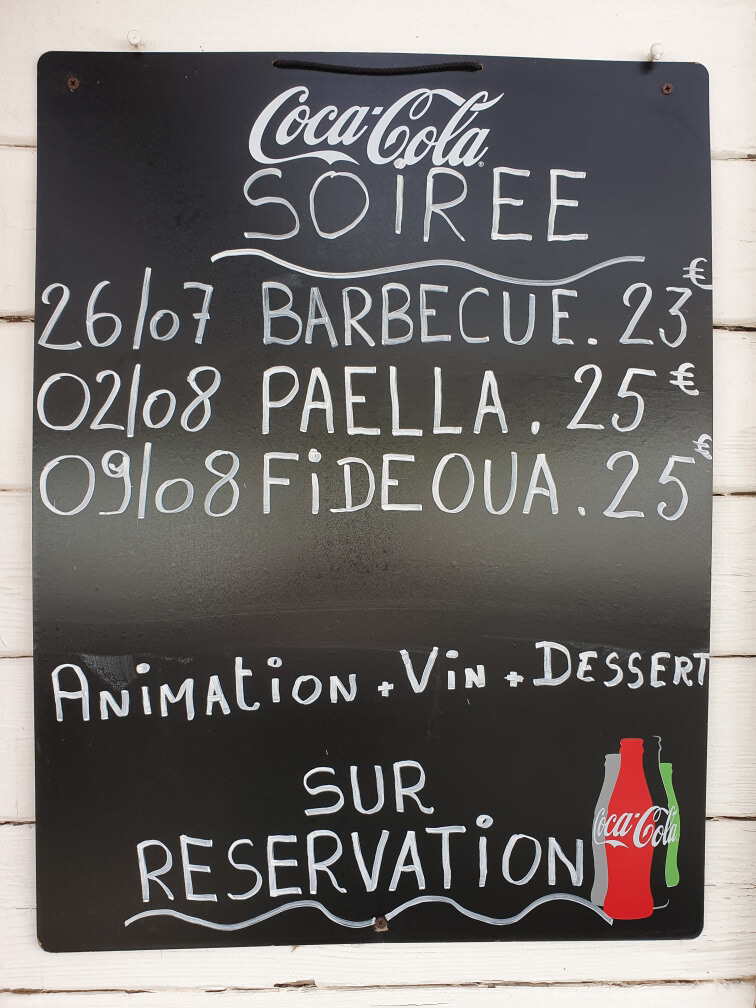 Coca-Cola
SOIREE
26/07 BARBECUE. 23€
02/08 PAELLA. 25€
09/08 FiDEOUA. 25€
ANiMAtiON + ViN + DESSERT
SUR
RESERVATiON
Coca-Cola